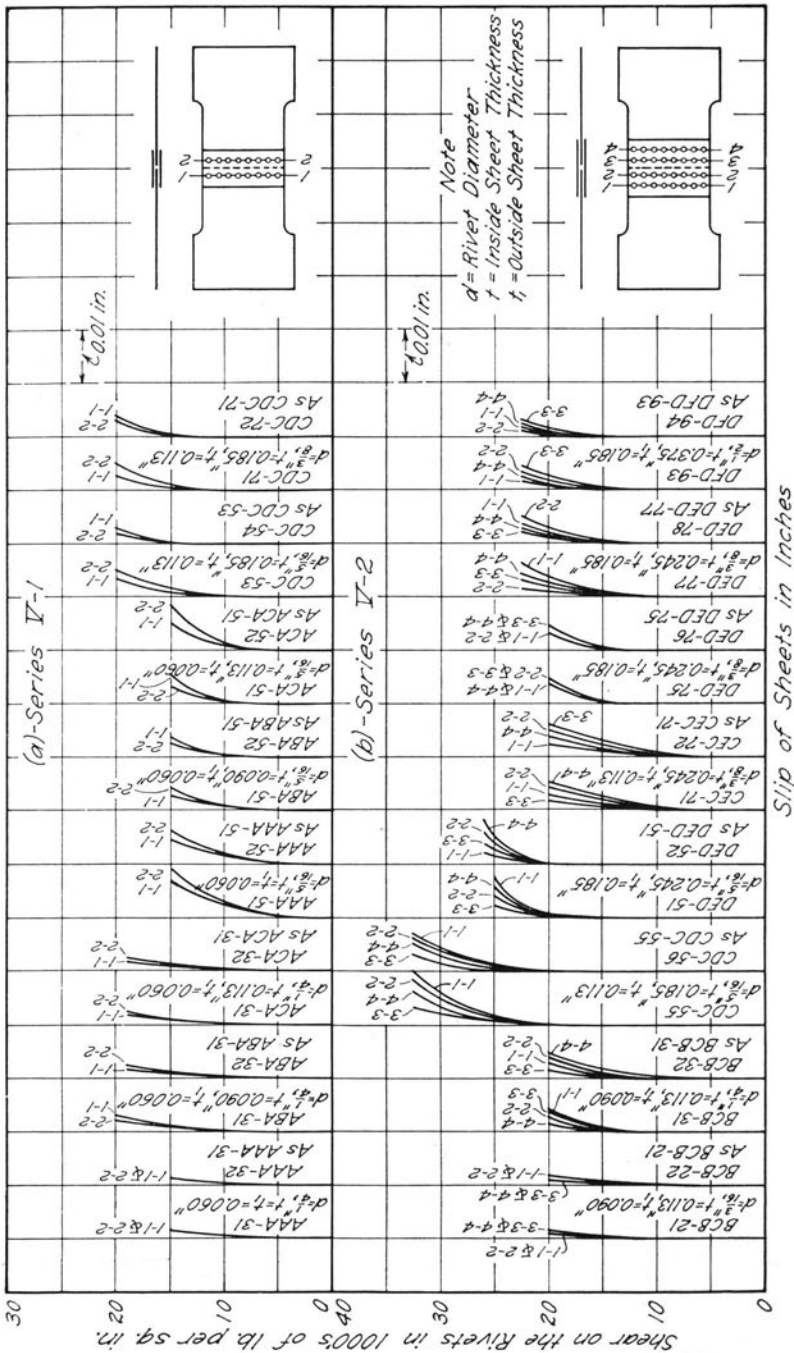 Shear on the Rivets in 1000's of lb. per sq. in.
30
20
10
0
30
20
10
0
(a)-Series V-1
AAA-31
d=1/4", t=t₁=0.060"
1-1 & 2-2
AAA-32
As AAA-31
1-1 & 2-2
ABA-31
d=1/4", t=0.090", t₁=0.060"
2-2
1-1
ABA-32
As ABA-31
1-1
2-2
ACA-31
d=1/4", t=0.113", t₁=0.060"
1-1
2-2
ACA-32
As ACA-31
1-1
2-2
AAA-51
d=5/16", t=t₁=0.060"
1-1
2-2
AAA-52
As AAA-51
1-1
2-2
ABA-51
d=5/16", t=0.090", t₁=0.060"
1-1
2-2
ABA-52
As ABA-51
2-2
1-1
ACA-51
d=5/16", t=0.113", t₁=0.060"
2-2
1-1
ACA-52
As ACA-51
1-1
2-2
CDC-53
d=5/16", t=0.185", t₁=0.113"
1-1
2-2
CDC-54
As CDC-53
2-2
1-1
CDC-71
d=3/8", t=0.185", t₁=0.113"
1-1
2-2
CDC-72
As CDC-71
2-2
1-1
0.01 in.
1
2
1
2
(b)-Series V-2
BCB-21
d=3/16", t=0.113", t₁=0.090"
1-1 & 2-2
3-3 & 4-4
BCB-22
As BCB-21
3-3 & 4-4
1-1 & 2-2
BCB-31
d=1/4", t=0.113", t₁=0.090"
4-4
2-2
3-3
1-1
BCB-32
As BCB-31
3-3
1-1
2-2
4-4
CDC-55
d=5/16", t=0.185", t₁=0.113"
3-3
4-4
2-2
1-1
CDC-56
As CDC-55
3-3
4-4
2-2
1-1
DED-51
d=5/16", t=0.245", t₁=0.185"
3-3
2-2
4-4
1-1
DED-52
As DED-51
1-1
3-3
2-2
4-4
CEC-71
d=3/8", t=0.245", t₁=0.113"
3-3
1-1
2-2
4-4
CEC-72
As CEC-71
1-1
4-4
2-2
3-3
DED-75
d=3/8", t=0.245", t₁=0.185"
1-1 & 4-4
2-2 & 3-3
DED-76
As DED-75
1-1 & 2-2
3-3 & 4-4
DED-77
d=3/8", t=0.245", t₁=0.185"
2-2
3-3
4-4
1-1
DED-78
As DED-77
3-3
4-4
1-1
2-2
DFD-93
d=1/2", t=0.375", t₁=0.185"
1-1
4-4
2-2
3-3
DFD-94
As DFD-93
2-2
1-1
4-4
3-3
0.01 in.
Note
d = Rivet Diameter
t = Inside Sheet Thickness
t₁ = Outside Sheet Thickness
1
2
3
4
1
2
3
4
Slip of Sheets in Inches